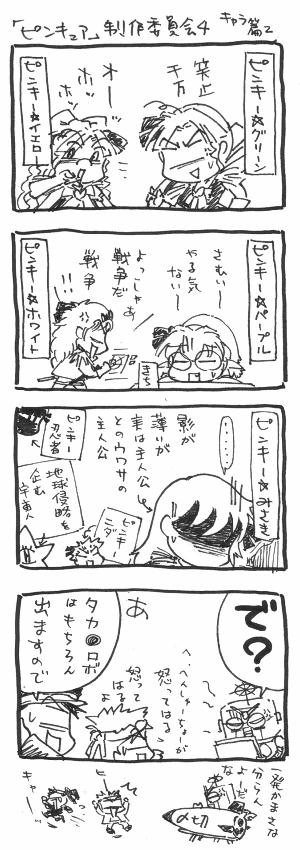 「ピンキュア」制作委員会4
キャラ篇2
ピンキー☆グリーン
笑止
千万
オーッ
ホッ
ホッ
ピンキー☆イエロー
ピンキー☆パープル
さむい〜
やる気
ない〜
きち
よっしゃあ
戦争だ
戦争
!!
ピンキー☆ホワイト
ピンキー☆みさき
・・・・・
影が
薄いが
実は主人公
とのウワサの
主人公
ピンキーニダ
ピンキー忍者
地球侵略を
企む
宇宙人
で?
へ、へんしゅーちょーが
怒ってはる
怒って
はるよ
あ
タカ●ロボ
はもちろん
出ますので
一発かまさな
分らん
よーだ
な
〆切
ヒー
キャーッ